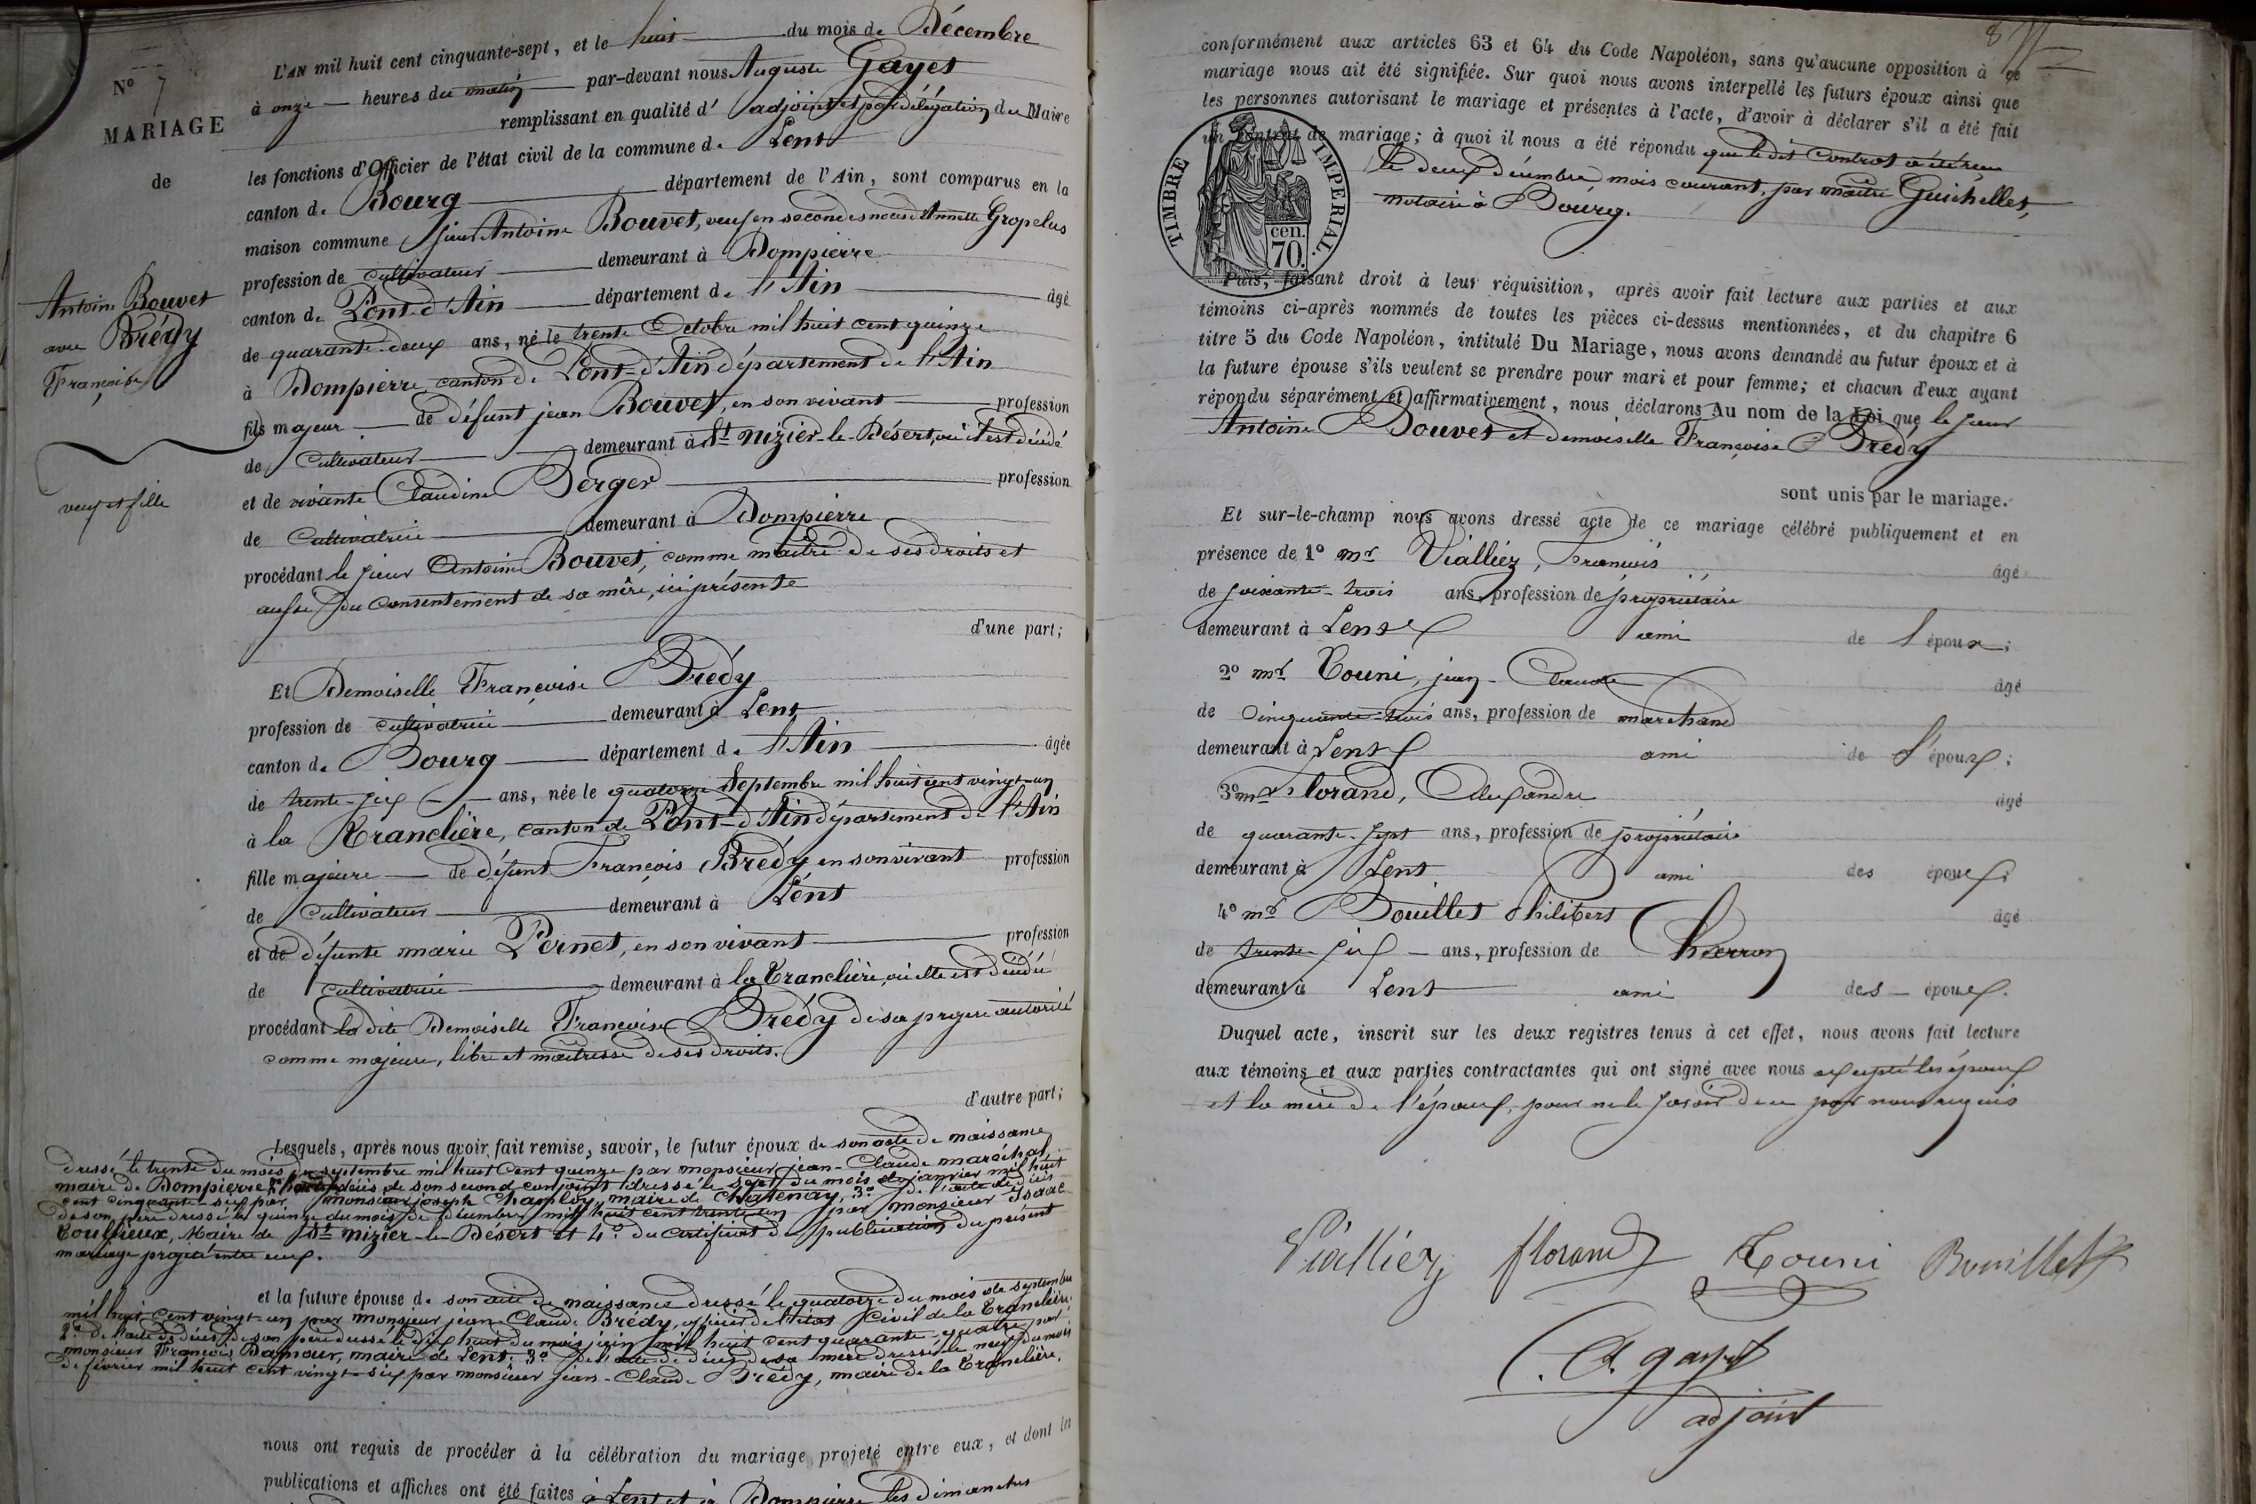 N° 7
MARIAGE
de
Antoine Bouvet
avec Brédy
Françoise
veuf et fille
L'AN mil huit cent cinquante-sept, et le huit du mois de Décembre
à onze heures du matin par-devant nous Auguste Gayet
remplissant en qualité d'adjoint et par délégation du Maire
les fonctions d'Officier de l'état civil de la commune de Lent
canton de Bourg département de l'Ain, sont comparus en la
maison commune sieur Antoine Bouvet, veuf en secondes noces d'Annette Gropelus
profession de cultivateur demeurant à Dompierre
canton de Pont-d'Ain département de l'Ain âgé
de quarante-deux ans, né le trente Octobre mil huit cent quinze
à Dompierre, canton de Pont-d'Ain département de l'Ain
fils majeur de défunt jean Bouvet, en son vivant profession
de cultivateur demeurant à St Nizier-le-Désert, où il est décédé
et de vivante Claudine Berger profession
de cultivatrice demeurant à Dompierre
procédant le sieur Antoine Bouvet, comme maître de ses droits et
aussi du consentement de sa mère, ici présente
d'une part;
Et Demoiselle Françoise Brédy
profession de cultivatrice demeurant à Lent
canton de Bourg département de l'Ain âgée
de trente-six ans, née le quatorze Septembre mil huit cent vingt-un
à la Tranclière, canton de Pont-d'Ain département de l'Ain
fille majeure de défunt François Brédy en son vivant profession
de cultivateur demeurant à Lent
et de défunte marie Pernet, en son vivant profession
de cultivatrice demeurant à la Tranclière, où elle est décédée
procédant la dite Demoiselle Françoise Brédy de sa propre autorité
comme majeure, libre et maîtresse de ses droits.
d'autre part;
Lesquels, après nous avoir fait remise, savoir, le futur époux de son acte de naissance
dressé le trente du mois de septembre mil huit cent quinze par monsieur jean-Claude maréchal,
maire de Dompierre décès de son second conjoint dressé le sept du mois de janvier mil huit
cent cinquante-six par monsieur joseph Chambly, maire de Chatenay, 3° de l'acte de décès
de son père dressé le quinze du mois de décembre mil huit cent trente-un par monsieur Isaac
Toulieux, Maire de St Nizier-le-Désert et 4° du certificat de publication du présent
mariage projeté entre eux.
et la future épouse de son acte de naissance dressé le quatorze du mois de septembre
mil huit cent vingt-un par monsieur jean Claude Brédy, officier de l'état civil de la Tranclière,
2° de l'acte de décès de son père dressé le dix huit du mois juin mil huit cent quarante-quatre par
monsieur François Damour, maire de Lent, 3° de l'acte de décès de sa mère dressé le neuf du mois
de février mil huit cent vingt-six par monsieur jean-Claude Brédy, maire de la Tranclière.
nous ont requis de procéder à la célébration du mariage projeté entre eux, et dont les
publications et affiches ont été faites à Lent et à Dompierre les dimanches
8
conformément aux articles 63 et 64 du Code Napoléon, sans qu'aucune opposition à ce
mariage nous ait été signifiée. Sur quoi nous avons interpellé les futurs époux ainsi que
les personnes autorisant le mariage et présentes à l'acte, d'avoir à déclarer s'il a été fait
un contrat de mariage; à quoi il nous a été répondu que le dit contrat a été reçu
le deux décembre mois courant, par maître Guichellet,
notaire à Bourg.
TIMBRE IMPERIAL
cen.
70.
Puis, faisant droit à leur réquisition, après avoir fait lecture aux parties et aux
témoins ci-après nommés de toutes les pièces ci-dessus mentionnées, et du chapitre 6
titre 5 du Code Napoléon, intitulé Du Mariage, nous avons demandé au futur époux et à
la future épouse s'ils veulent se prendre pour mari et pour femme; et chacun d'eux ayant
répondu séparément et affirmativement, nous déclarons Au nom de la Loi que le sieur
Antoine Bouvet et demoiselle Françoise Brédy
sont unis par le mariage.
Et sur-le-champ nous avons dressé acte de ce mariage célébré publiquement et en
présence de 1° mr Vialliez, François âgé
de soixante-trois ans, profession de propriétaire
demeurant à Lent ami de l'époux;
2° mr Touni, jean-Claude âgé
de cinquante-trois ans, profession de marchand
demeurant à Lent ami de l'époux;
3° mr florand, Alexandre âgé
de quarante-sept ans, profession de propriétaire
demeurant à Lent ami des époux;
4° mr Bouillet Philibert âgé
de trente-six ans, profession de
demeurant à Lent ami des époux.
Duquel acte, inscrit sur les deux registres tenus à cet effet, nous avons fait lecture
aux témoins et aux parties contractantes qui ont signé avec nous excepté les époux
et la mère de l'époux, pour ne le savoir de ce par nous requis
Vialliez florand Touni Bouillet
A. gayet
adjoint